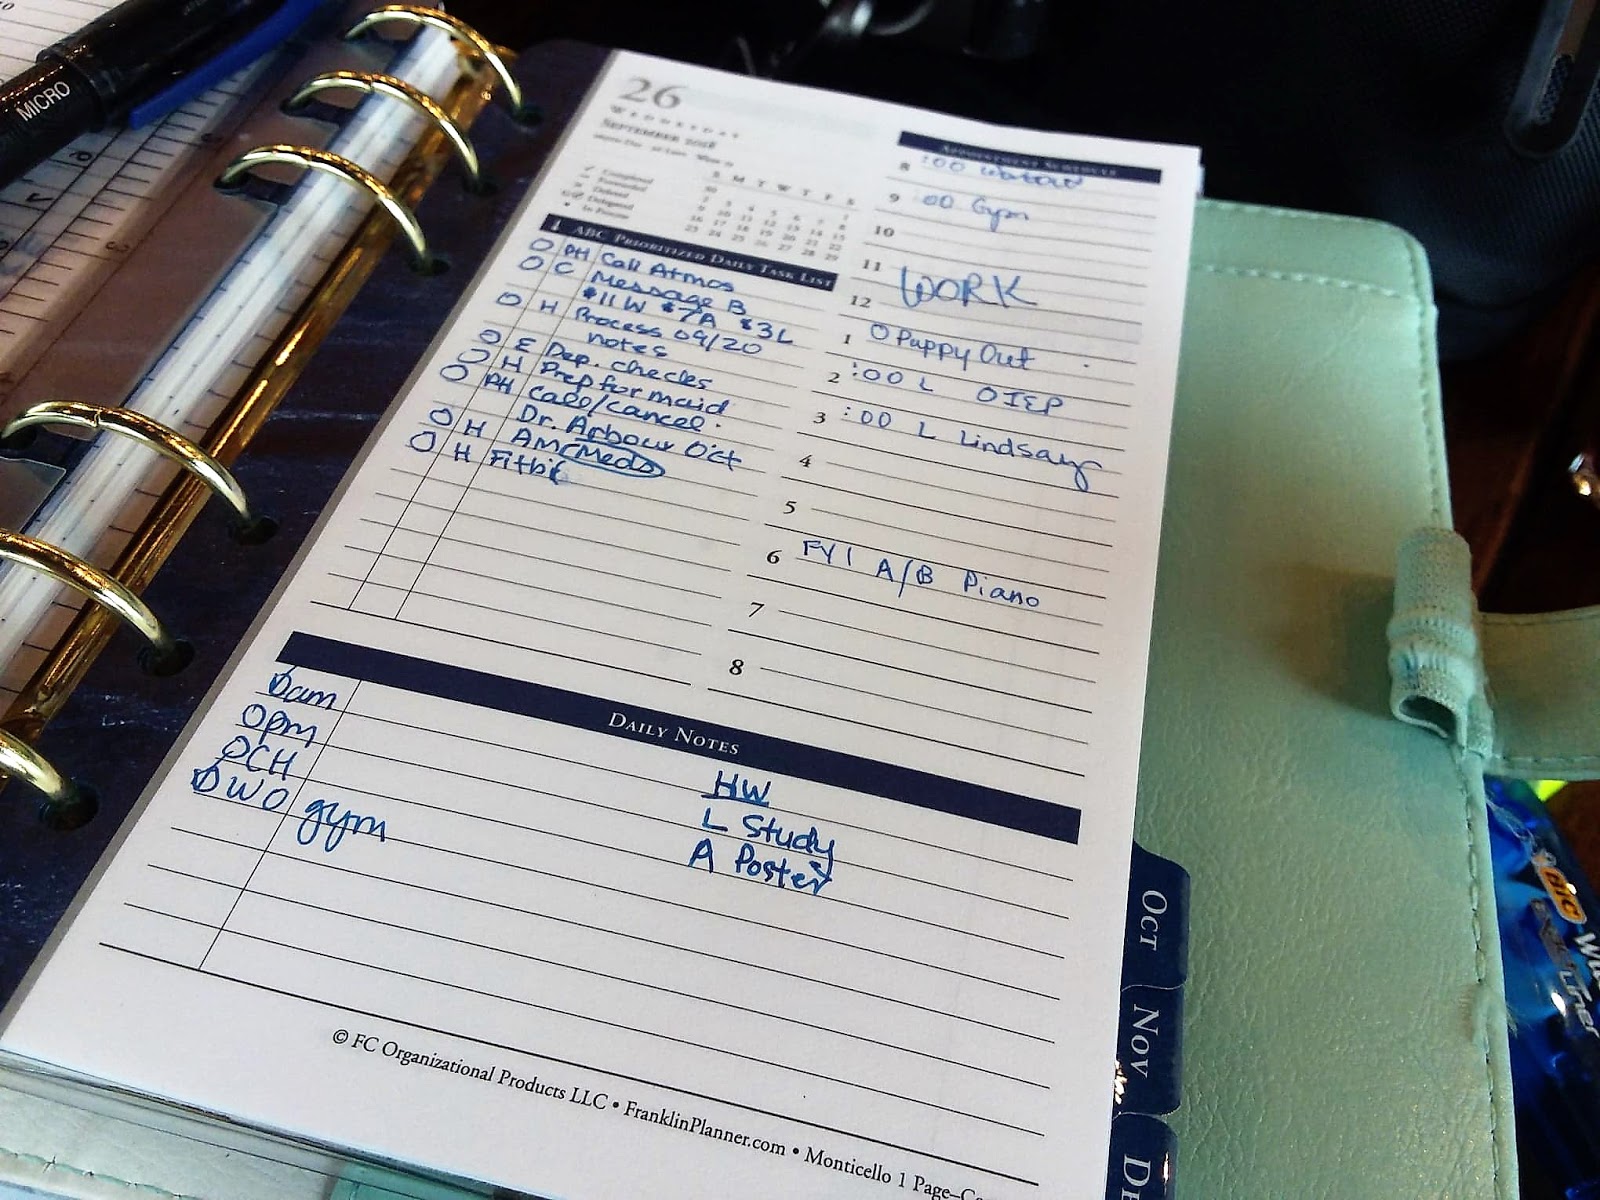 MICRO
26
WEDNESDAY
SEPTEMBER 2018
Completed
Forwarded
Deleted
Delegated
In Process
S M T W T F S
30 1
2 3 4 5 6 7 8
9 10 11 12 13 14 15
16 17 18 19 20 21 22
23 24 25 26 27 28 29
ABC PRIORITIZED DAILY TASK LIST
O PH Call Atmos
O C Message B
$11 W $7A $3L
O H Process 09/20
notes
O E Dep. checks
O H Prep for maid
O PH Call/cancel
Dr. Arbour Oct
O H AM Meds
O H Fitbit
APPOINTMENT SCHEDULE
8 :00 Workout
9 :00 Gym
10
11
WORK
12
1 O Puppy Out
2 :00 L O IEP
3 :00 L Lindsay
4
5
6 FYI A/B Piano
7
8
DAILY NOTES
O am
O pm
O CH
O WO gym
HW
L Study
A Poster
© FC Organizational Products LLC • FranklinPlanner.com • Monticello 1 Page–
OCT
NOV
DE
BIC